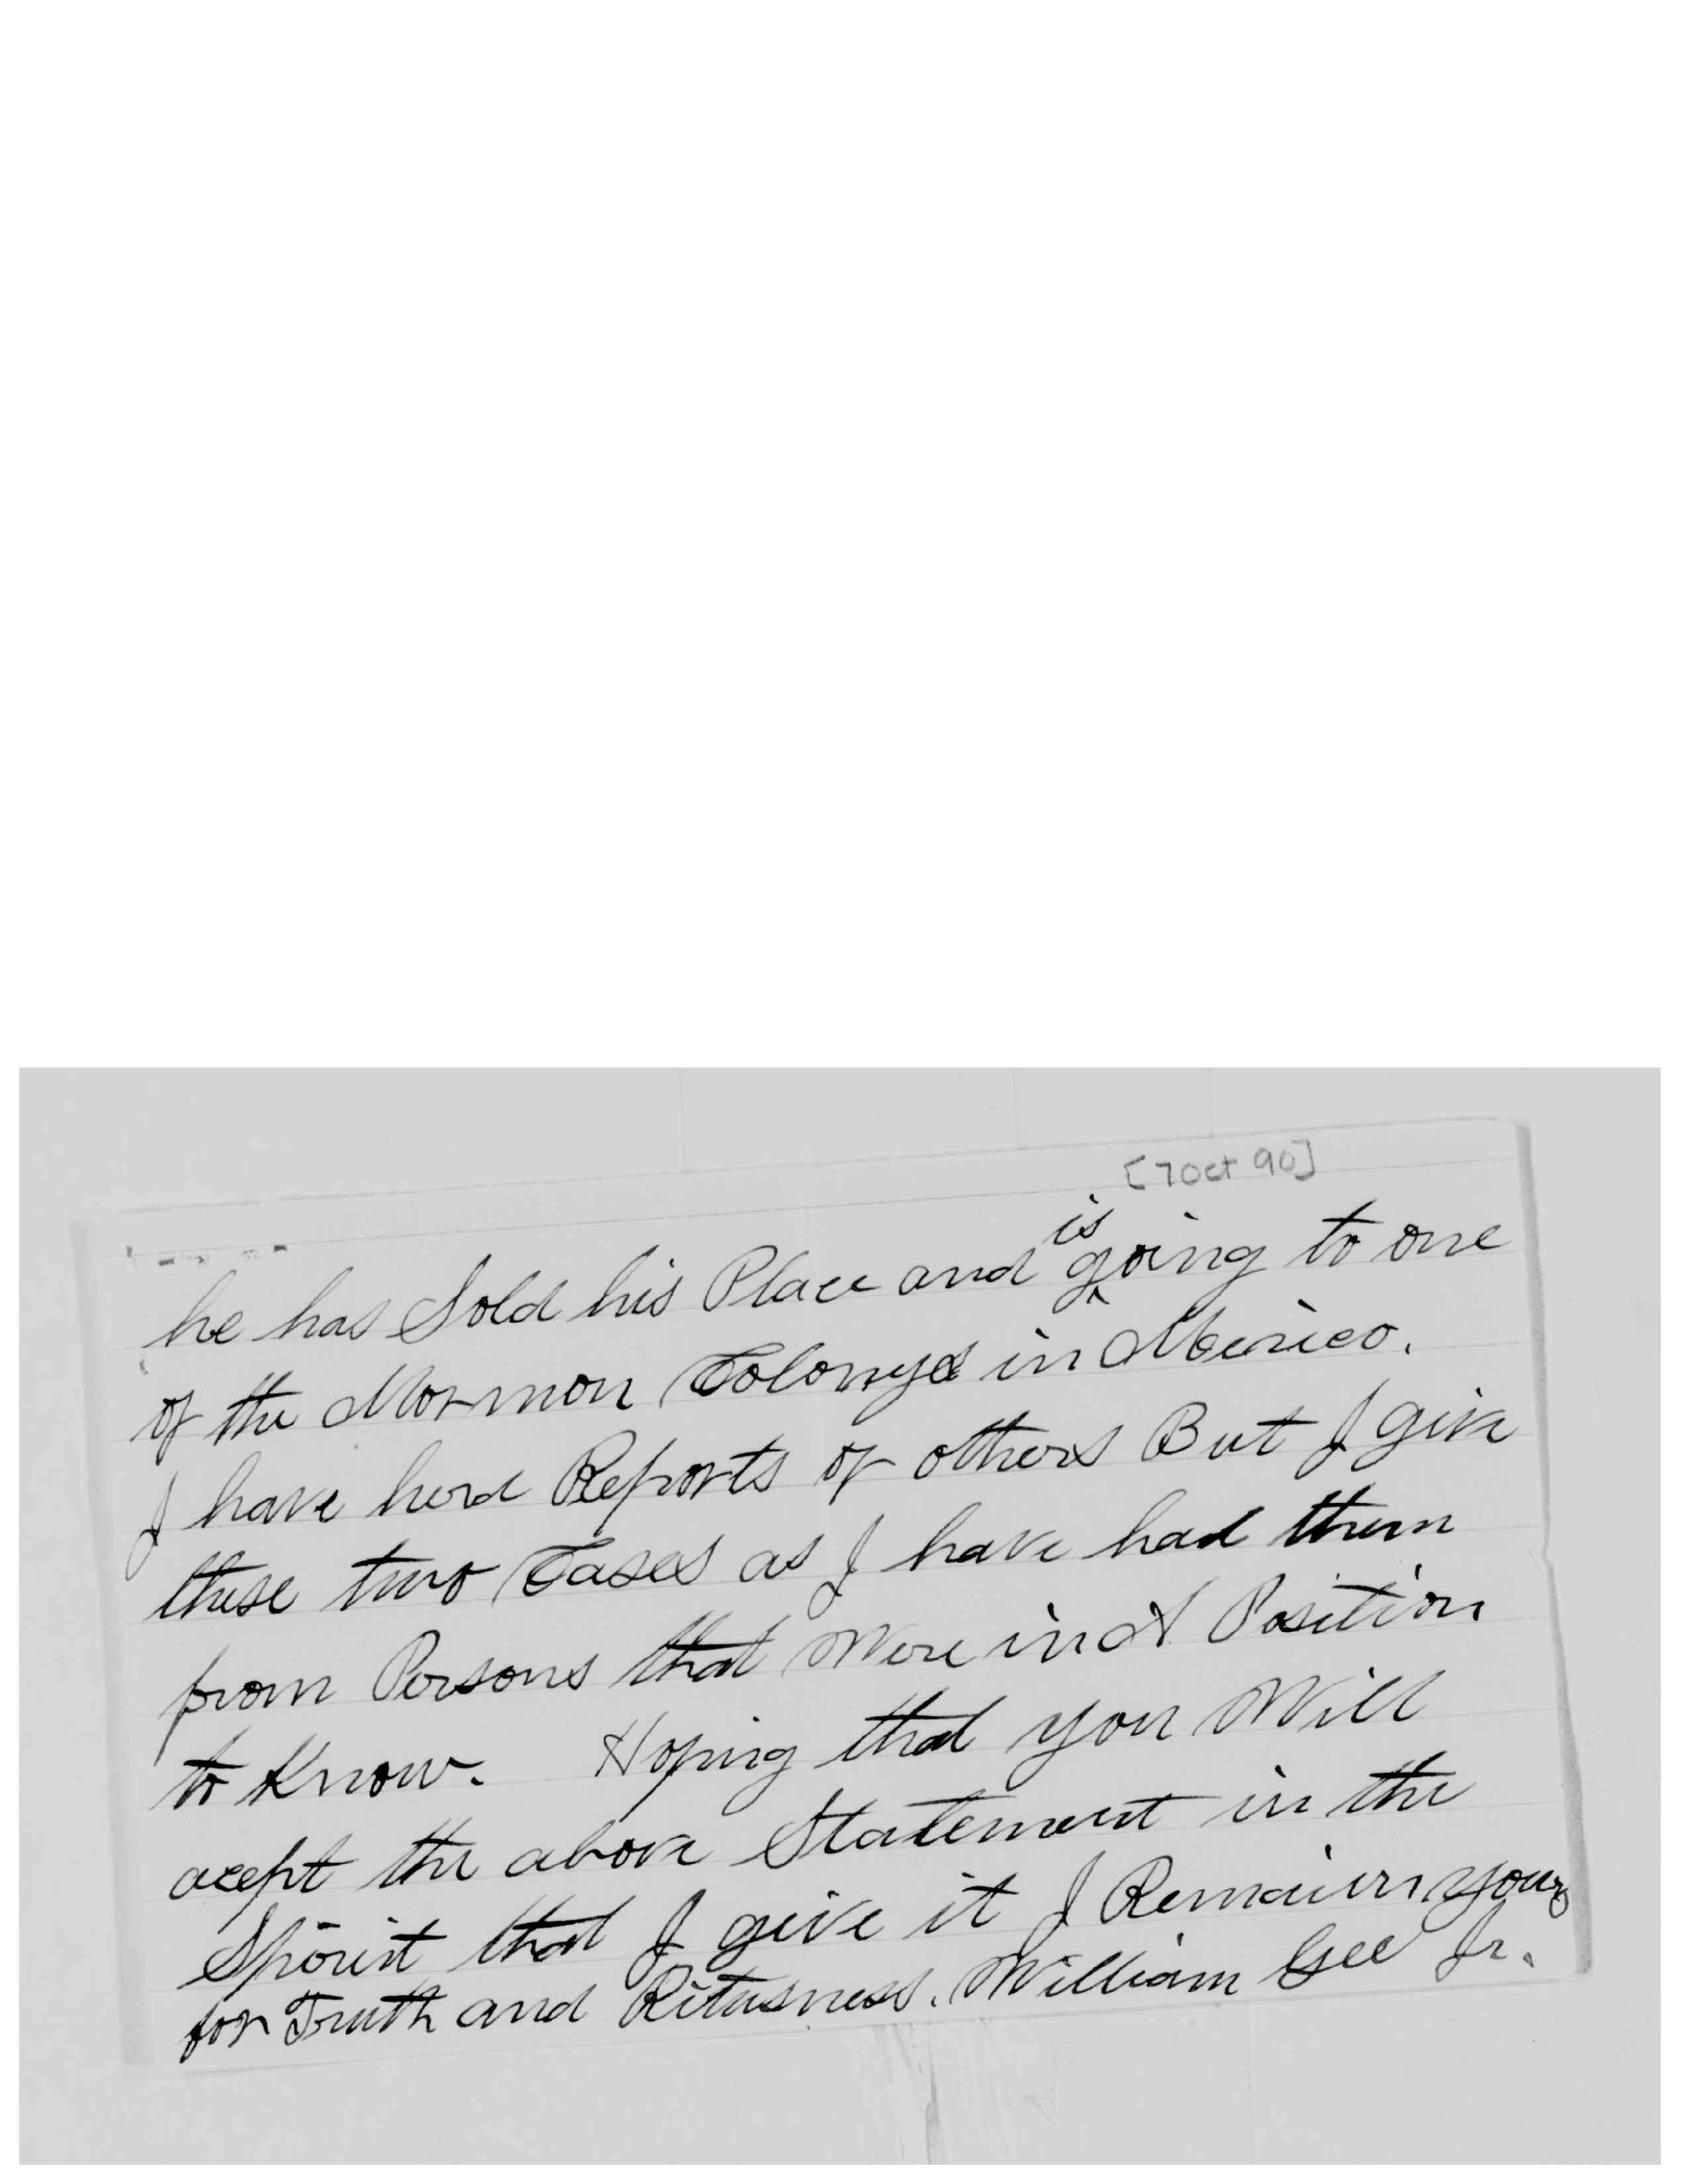 [7 Oct 90]
he has Sold his Place and is going to one
of the Mormon Colonys in Mexico.
I have herd Reports of others But I give
these two Cases as I have had them
from Persons that Were in A Position
to Know. Hoping that you Will
acept the above Statement in the
Spirit that I give it I Remain yours
for Truth and Ritusness. William Gee Jr.